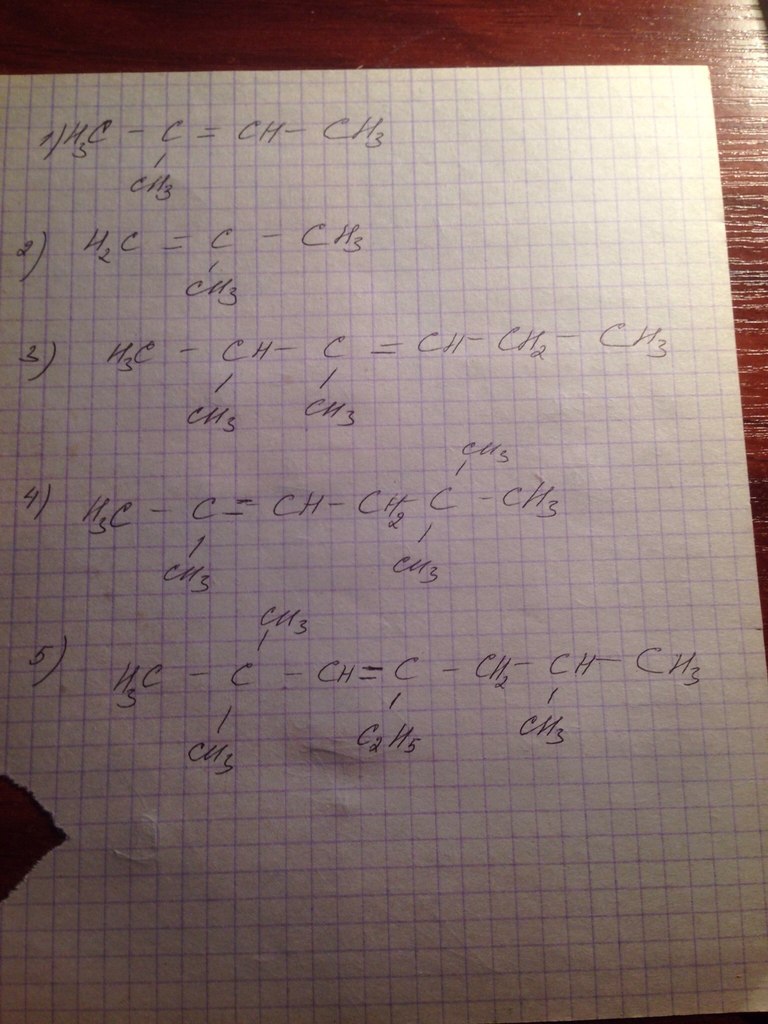 1) H3C - C = CH - CH3
CH3
2) H2C = C - CH3
CH3
3) H3C - CH - C = CH - CH2 - CH3
CH3 CH3
CH3
4) H3C - C = CH - CH2 - C - CH3
CH3 CH3
CH3
5) H3C - C - CH = C - CH2 - CH - CH3
CH3 C2H5 CH3